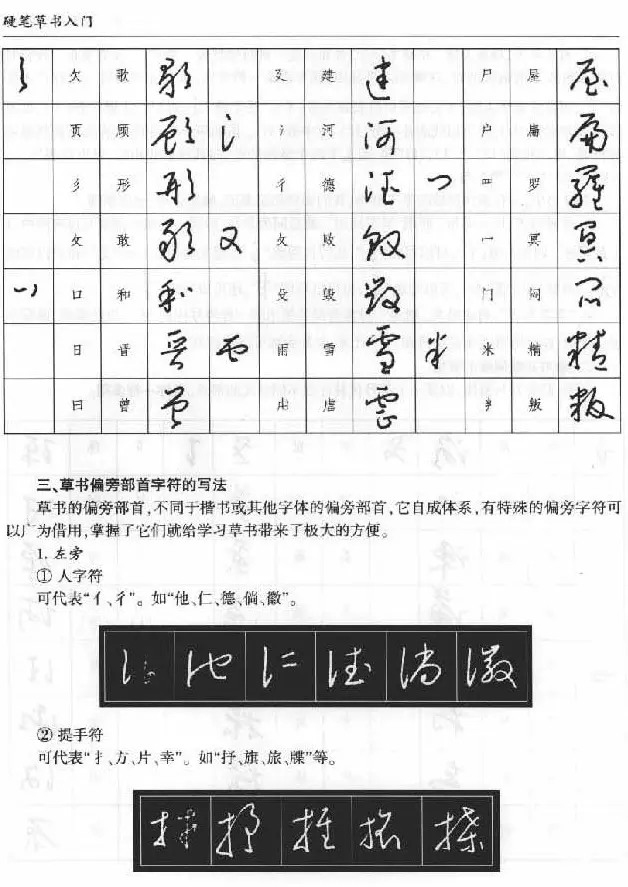 硬笔草书入门
欠 歌 廴 建 尸 屋
页 顾 氵 河 户 扁
彡 形 彳 德 罒 罗
攵 敢 攵 败 冖 冥
口 和 殳 毁 门 问
日 晋 雨 雪 米 精
曰 曾 虐 叛
三、草书偏旁部首字符的写法
草书的偏旁部首,不同于楷书或其他字体的偏旁部首,它自成体系,有特殊的偏旁字符可
以广为借用,掌握了它们就给学习草书带来了极大的方便。
1. 左旁
① 人字符
可代表“亻、彳”。如“他、仁、德、倘、徽”。
② 提手符
可代表“扌、方、片、幸”。如“抒、旗、旅、牒”等。